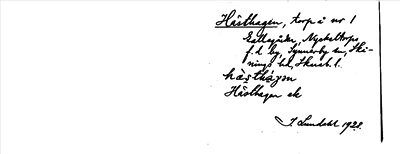 Hästhagen, torp å nr 1
Gällegården, Nyckeltorps
f.d. by, Synnerby sn, Skå-
nings hd, Skarab. l.
hàsthágen
Hästhagen ek
I. Lundahl 1928.